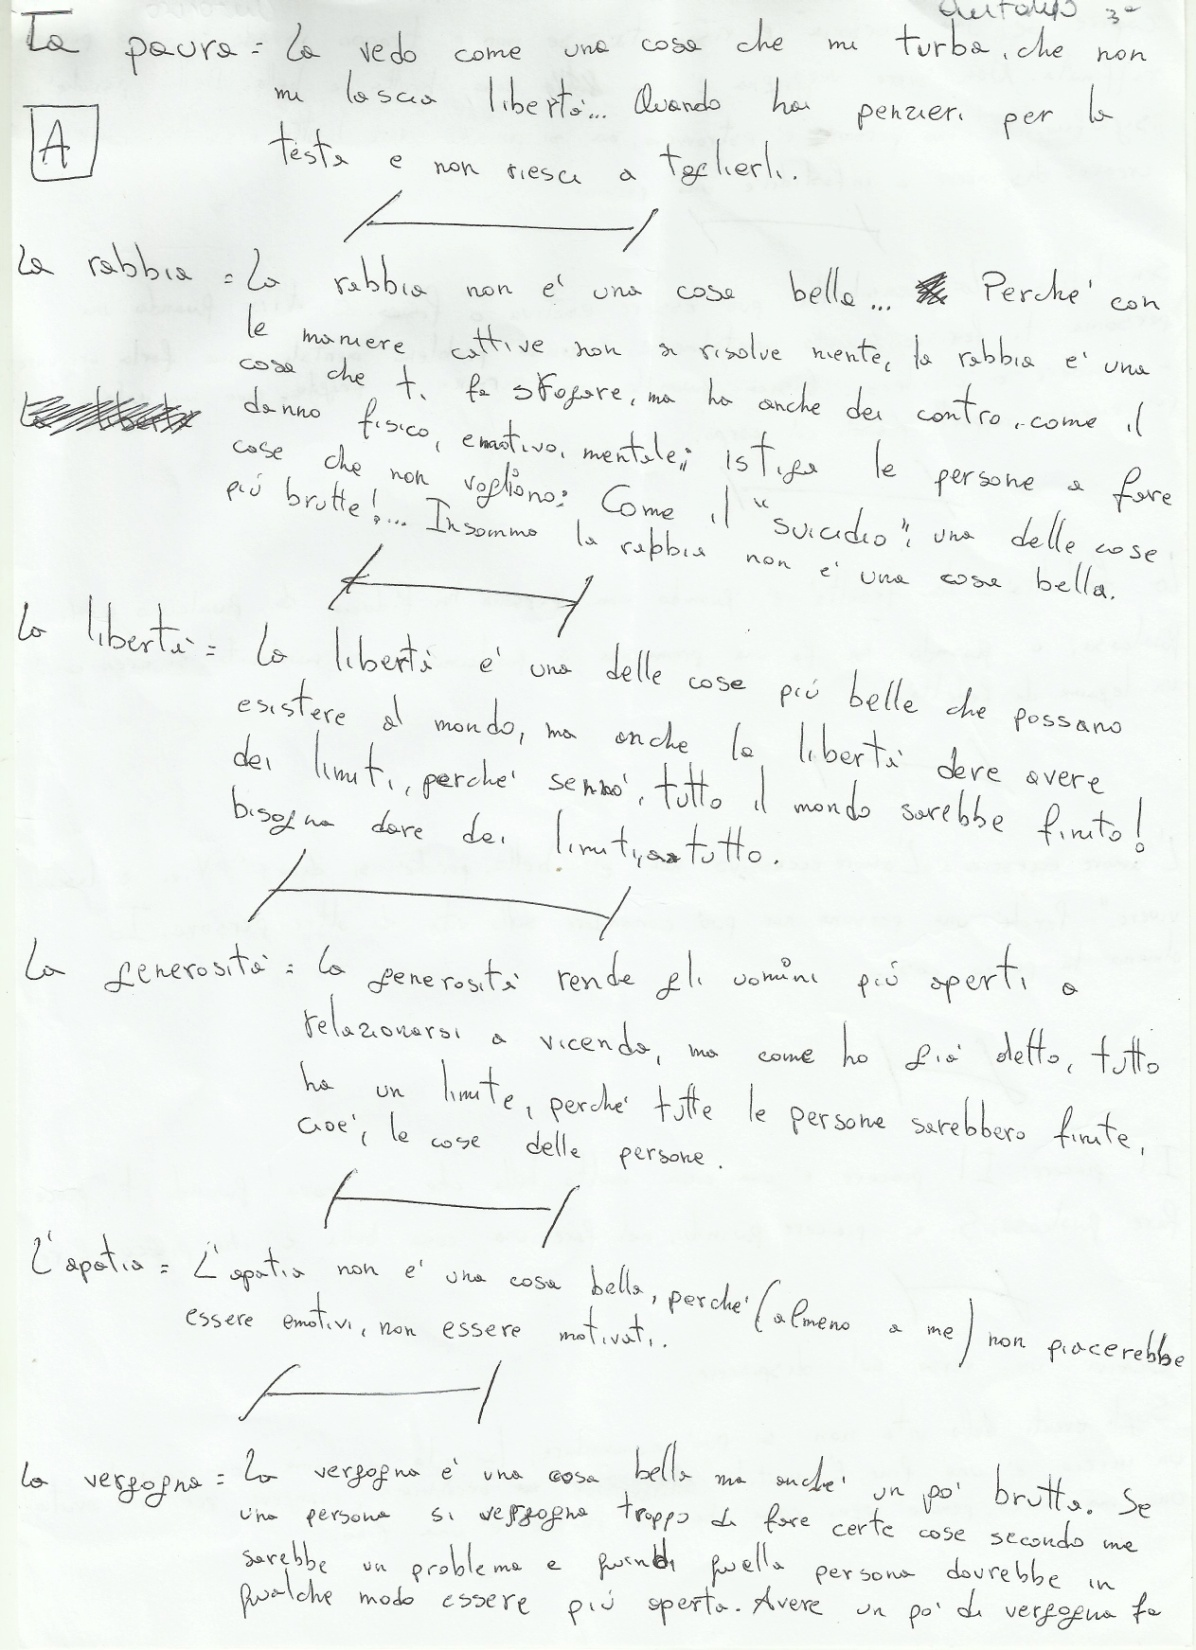 3ª
La paura = La vedo come una cosa che mi turba, che non
mi lascia libertà... Quando hai pensieri per la
A
testa e non riesci a toglierli.
La rabbia = La rabbia non è una cosa bella... Perchè con
le maniere cattive non si risolve niente, la rabbia è una
cosa che ti fa sfogare, ma ha anche dei contro, come il
danno fisico, emotivo, mentale; istiga le persone a fare
cose che non vogliono: Come il "suicidio", una delle cose
più brutte!... Insomma la rabbia non è una cosa bella.
La libertà = La libertà è una delle cose più belle che possano
esistere al mondo, ma anche la libertà deve avere
dei limiti, perchè sennò, tutto il mondo sarebbe finito!
bisogna dare dei limiti, a tutto.
La generosità = La generosità rende gli uomini più aperti a
relazionarsi a vicenda, ma come ho già detto, tutto
ha un limite, perchè tutte le persone sarebbero finite,
cioè, le cose delle persone.
L'apatia = L'apatia non è una cosa bella, perchè (almeno a me) non piacerebbe
essere emotivi, non essere motivati.
La vergogna = La vergogna è una cosa bella ma anche un pò brutta. Se
una persona si vergogna troppo di fare certe cose secondo me
sarebbe un problema e quindi quella persona dovrebbe in
qualche modo essere più aperta. Avere un pò di vergogna fa